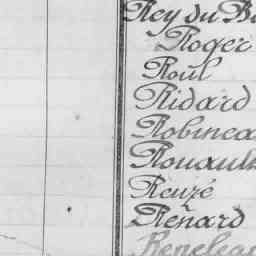 Rey du Bo
Roger
Roul
Ridard
Robinea
Rouault
Reuzé
Rénard
Renelea